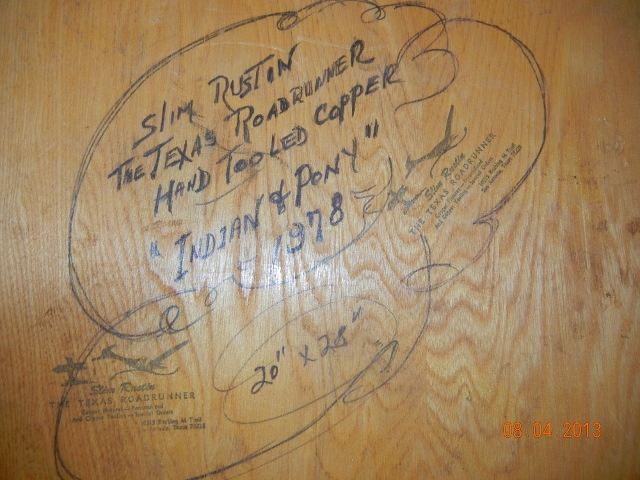 SLIM RUSTIN
THE TEXAS ROADRUNNER
HAND TOOLED COPPER
"INDIAN & PONY"
1978
Slim Rustin
THE TEXAS ROADRUNNER
20" x 28"
Slim Rustin
THE TEXAS ROADRUNNER
Texas
08.04.2013